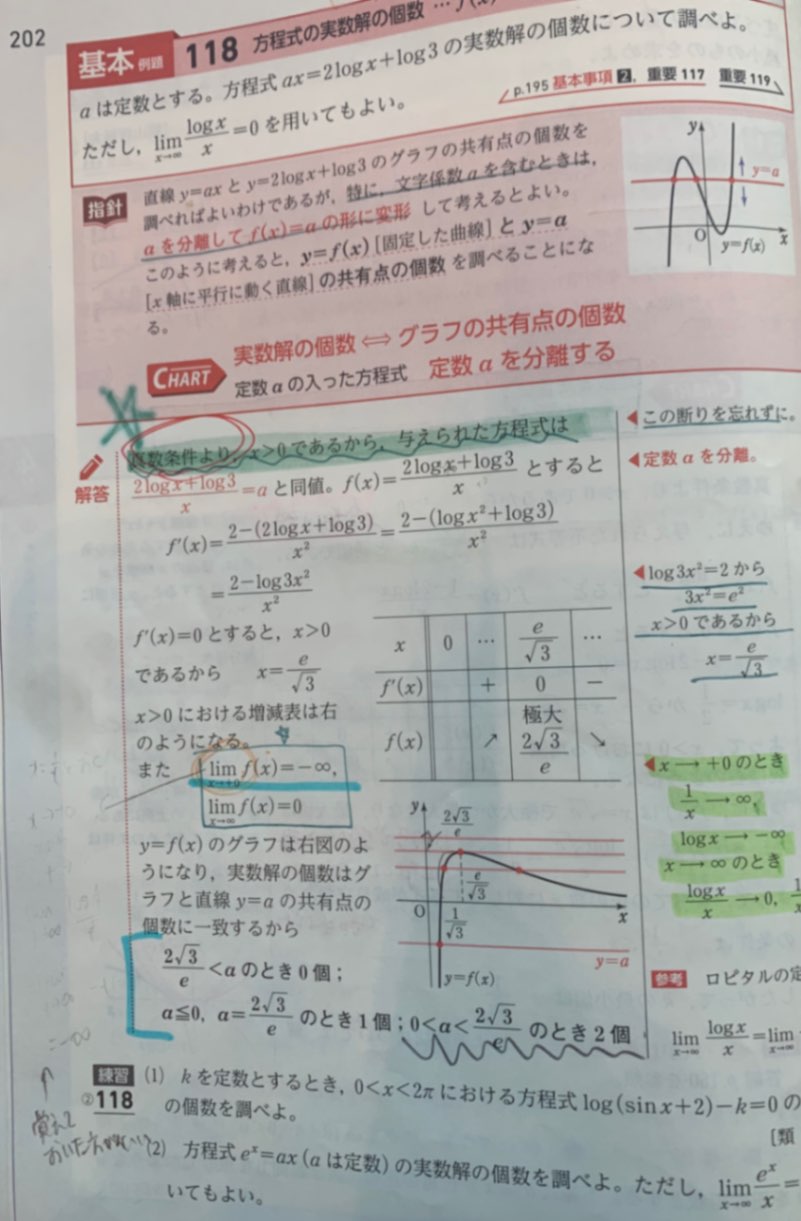 202
基本 例題 118 方程式の実数解の個数 … f(x)
aは定数とする。方程式 ax=2logx+log3 の実数解の個数について調べよ。
ただし,lim x→∞ logx/x=0 を用いてもよい。
p.195 基本事項 2, 重要 117 重要 119
指針
直線 y=ax と y=2logx+log3 のグラフの共有点の個数を
調べればよいわけであるが,特に,文字係数 a を含むときは,
a を分離して f(x)=a の形に変形 して考えるとよい。
このように考えると,y=f(x)[固定した曲線]と y=a
[x 軸に平行に動く直線]の共有点の個数 を調べることにな
る。
y y=a O x y=f(x)
CHART 実数解の個数 ⇔ グラフの共有点の個数
定数 a の入った方程式 定数 a を分離する
解答
真数条件より,x>0 であるから,与えられた方程式は
◀この断りを忘れずに。
(2logx+log3)/x=a と同値。f(x)=(2logx+log3)/x とすると
◀定数 a を分離。
f'(x)=(2-(2logx+log3))/x²=(2-(logx²+log3))/x²
=(2-log3x²)/x²
◀log3x²=2 から
3x²=e²
x>0 であるから
x=e/√3
f'(x)=0 とすると,x>0
であるから x=e/√3
x>0 における増減表は右
のようになる。
x 0 … e/√3 …
f'(x) + 0 -
f(x) ↗ 極大 2√3/e ↘
また lim x→+0 f(x)=-∞,
lim x→∞ f(x)=0
◀x→+0 のとき
1/x→∞,
logx→-∞
x→∞ のとき
logx/x→0, 1/x
y=f(x) のグラフは右図のよ
うになり,実数解の個数はグ
ラフと直線 y=a の共有点の
個数に一致するから
y 2√3/e e/√3 O 1/√3 x y=a y=f(x)
2√3/e<a のとき 0 個;
a≦0, a=2√3/e のとき 1 個;0<a<2√3/e のとき 2 個
参考 ロピタルの定
lim x→∞ logx/x=lim x→∞
=-∞
覚えて
おいた方がいい
練習 ②118
(1) k を定数とするとき,0<x<2π における方程式 log(sinx+2)-k=0 の
の個数を調べよ。
[類
(2) 方程式 eˣ=ax(a は定数)の実数解の個数を調べよ。ただし,lim x→∞ eˣ/x=
いてもよい。